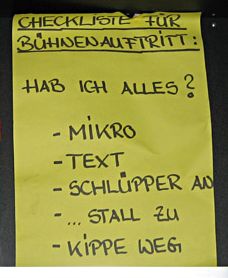 CHECKLISTE FÜR
BÜHNENAUFTRITT:
HAB ICH ALLES?
- MIKRO
- TEXT
- SCHLÜPPER AN
- ... STALL ZU
- KIPPE WEG